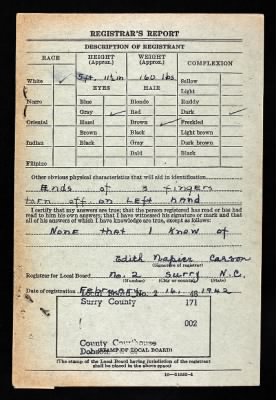 REGISTRAR'S REPORT
DESCRIPTION OF REGISTRANT
RACE
HEIGHT (Approx.)
WEIGHT (Approx.)
COMPLEXION
White ✓ 5 ft. 11½ in 160 lbs. Sallow
EYES HAIR Light
Negro Blue Blonde Ruddy
Gray ✓ Red Dark ✓
Oriental Hazel Brown ✓ Freckled
Brown Black Light brown
Indian Black Gray Dark brown
Bald Black
Filipino
Other obvious physical characteristics that will aid in identification
Ends of 3 fingers
torn off on Left hand
I certify that my answers are true; that the person registered has read or has had
read to him his own answers; that I have witnessed his signature or mark and that
all of his answers of which I have knowledge are true, except as follows:
None that I know of
Edith Napier Carson
(Signature of registrar)
Registrar for Local Board No. 2 Surry N.C.
(Number) (City or county) (State)
Date of registration February 16, 1942
Local Board No. 2 48
Surry County 171
002
County Courthouse
Dobson
(STAMP OF LOCAL BOARD)
(The stamp of the Local Board having jurisdiction of the registrant
shall be placed in the above space)